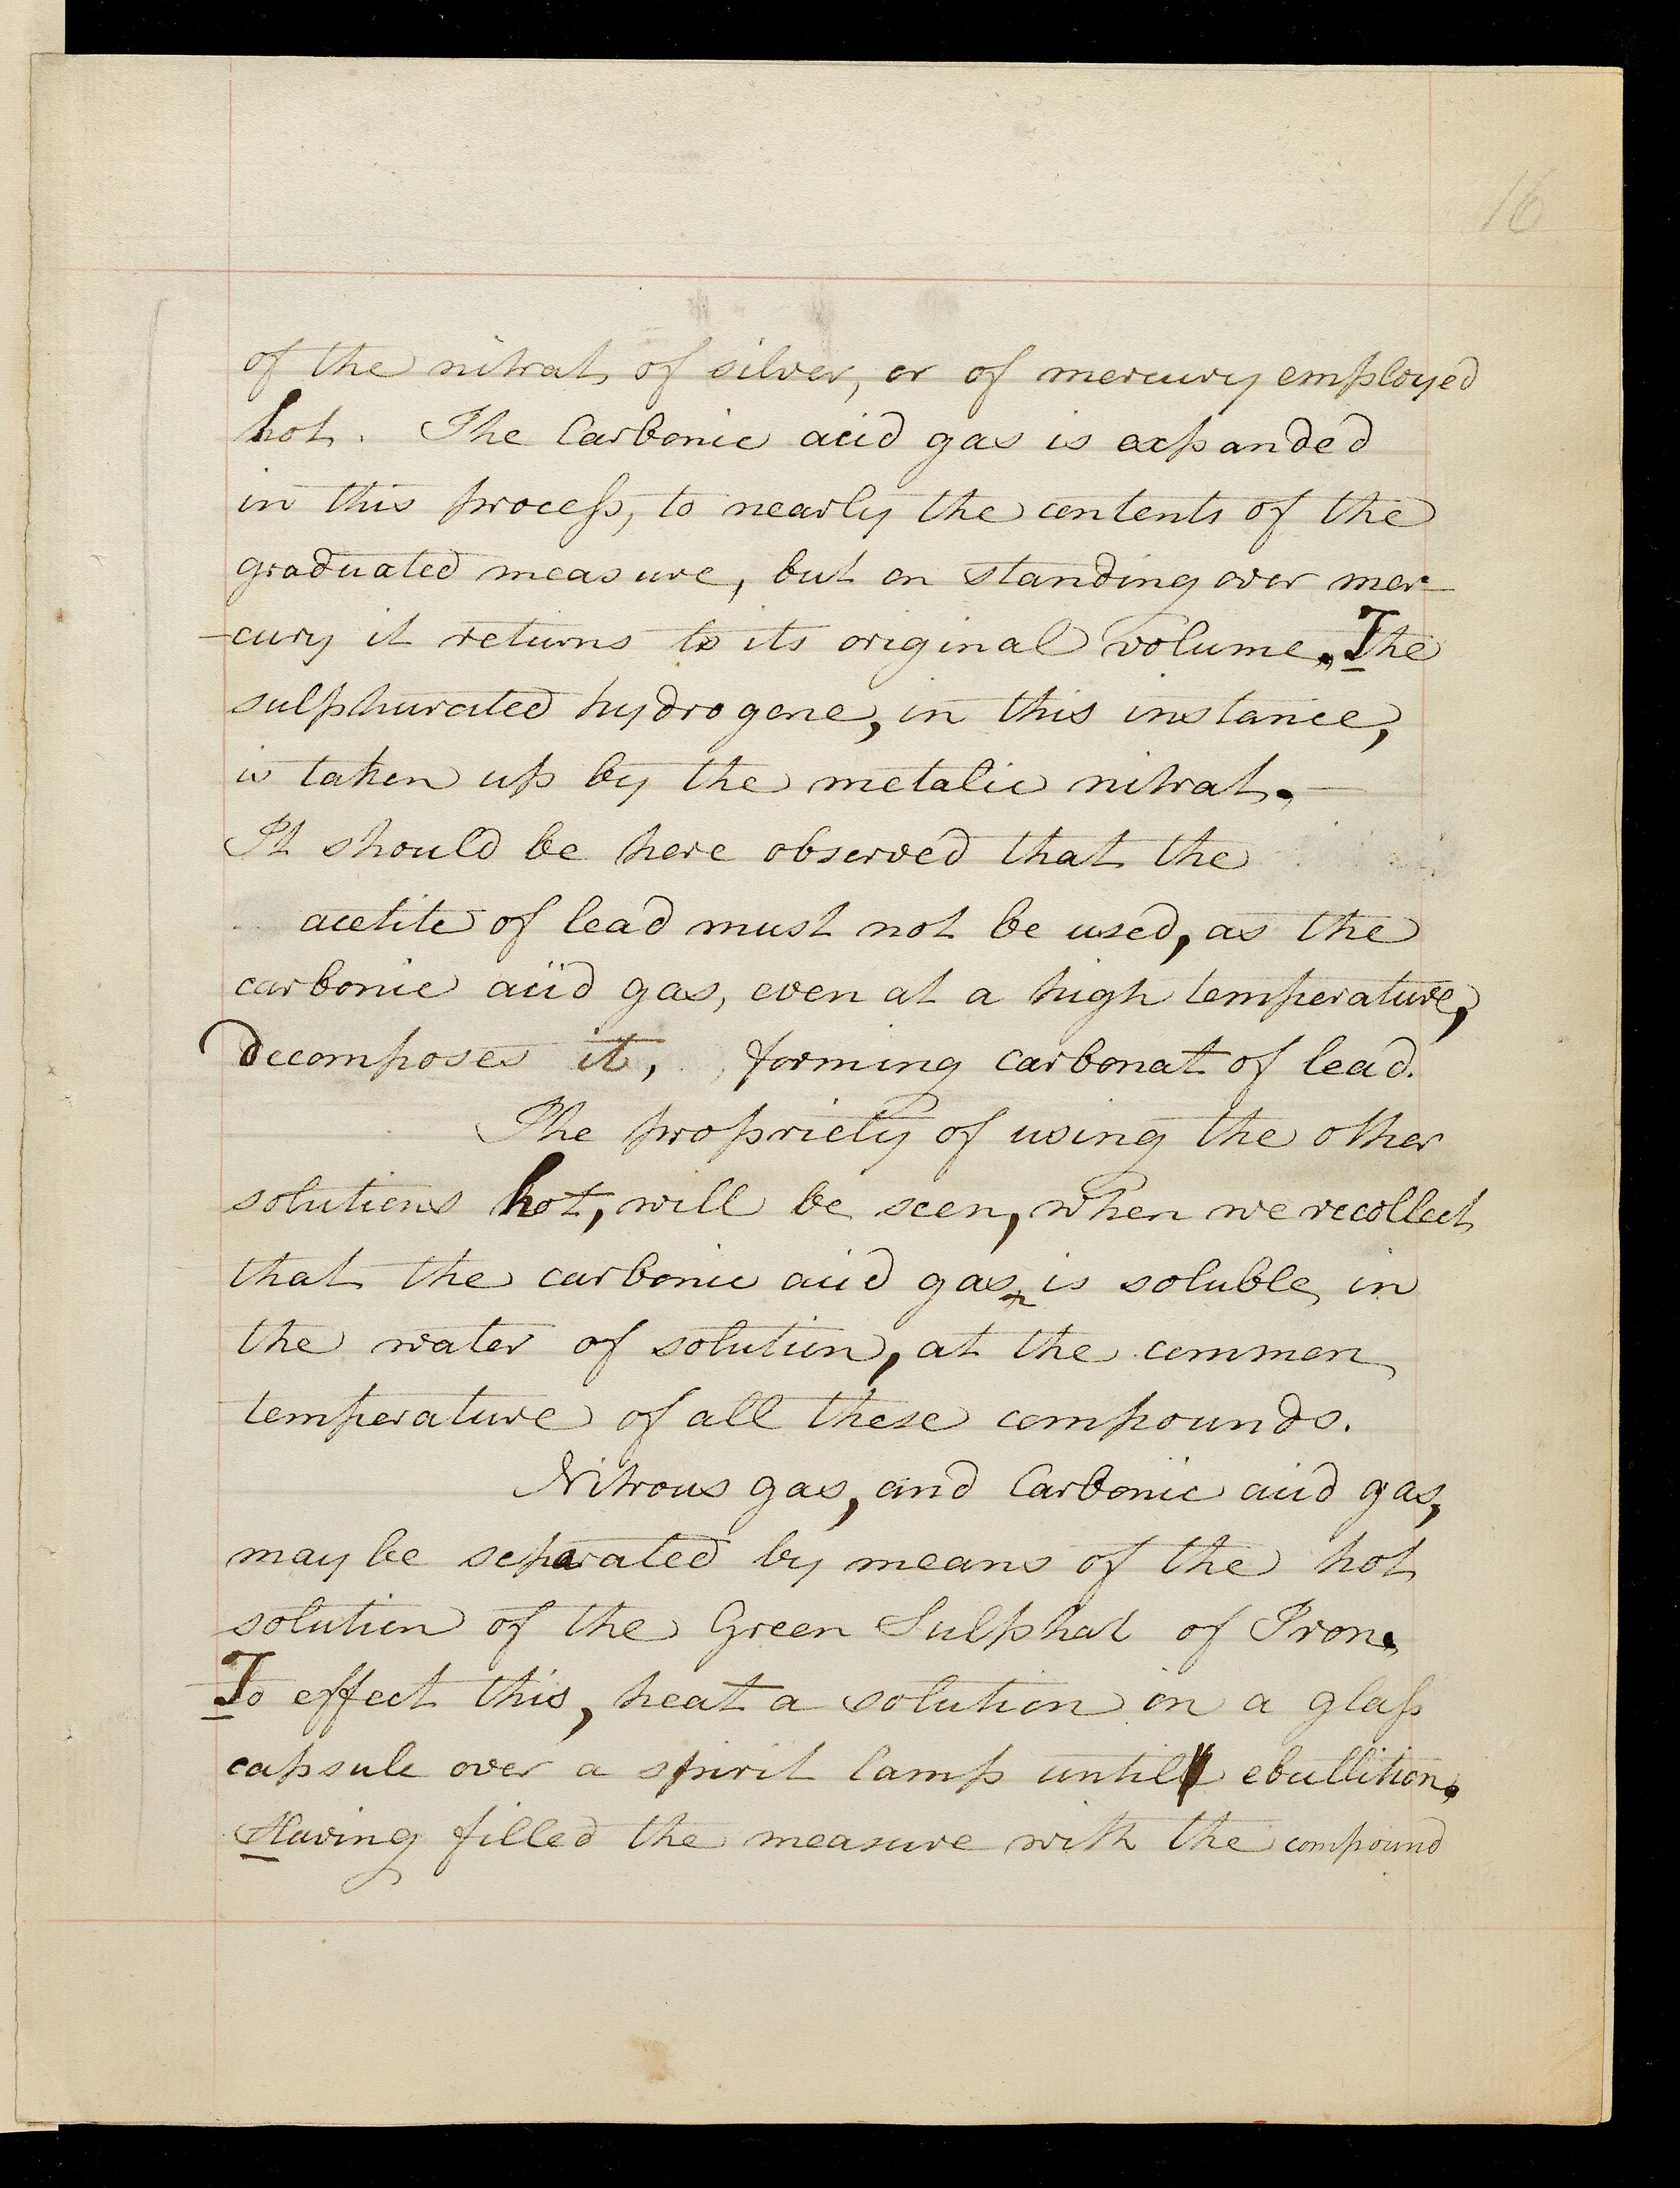 16
of the nitrat of silver, or of mercury employed
hot. The Carbonic acid gas is expanded
in this process, to nearly the contents of the
graduated measure, but on standing over mer-
-cury it returns to its original volume. The
sulphurated hydrogene, in this instance,
is taken up by the metalic nitrat.
It should be here observed that the
acetite of lead must not be used, as the
carbonic acid gas, even at a high temperature,
decomposes it, forming carbonat of lead.
The propriety of using the other
solutions hot, will be seen, when we recollect
that the carbonic acid gas is soluble in
the water of solution, at the common
temperature of all these compounds.
Nitrous gas, and Carbonic acid gas,
may be separated by means of the hot
solution of the Green Sulphat of Iron.
To effect this, heat a solution in a glass
capsule over a spirit lamp until ebullition.
Having filled the measure with the compound